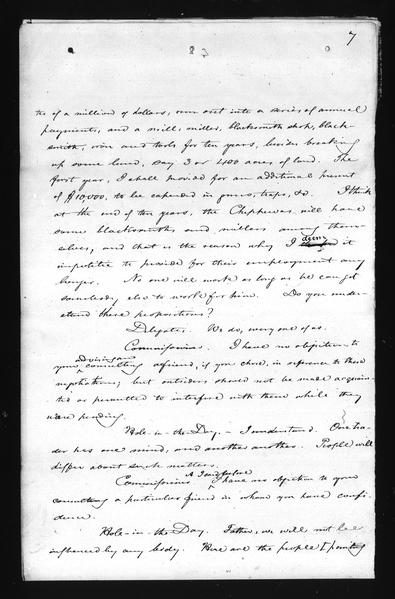 7
ters of a million of dollars, run out into a series of annual
payments, and a mill, miller, blacksmith shop, black-
smith, iron and tools for ten years, besides breaking
up some land, say 3 or 400 acres of land. The
first year, I shall provide for an additional amount
of $10,000, to be expended in guns, traps, &c. I think
at the end of ten years, the Chippewas will have
some blacksmiths and millers among them-
selves, and that is the reason why I deem it
impolitic to provide for their employment any
longer. No one will work as long as he can get
somebody else to work for him. Do you under-
stand these propositions?
Delegates. We do, every one of us.
Commissioner. I have no objection to
your consulting a friend, if you chose, in reference to these
negotiations; but outsiders should not be made acquain-
ted or permitted to interfere with them while they
were pending.
Hole-in-the-Day. - I understand. One tra-
der has one mind, and another another. People will
differ about such matters.
Commissioner I have no objection to your
consulting a particular friend in whom you have confi-
dence.
Hole-in-the-Day. Father, we will not be
influenced by any body. Here are the people [pointing